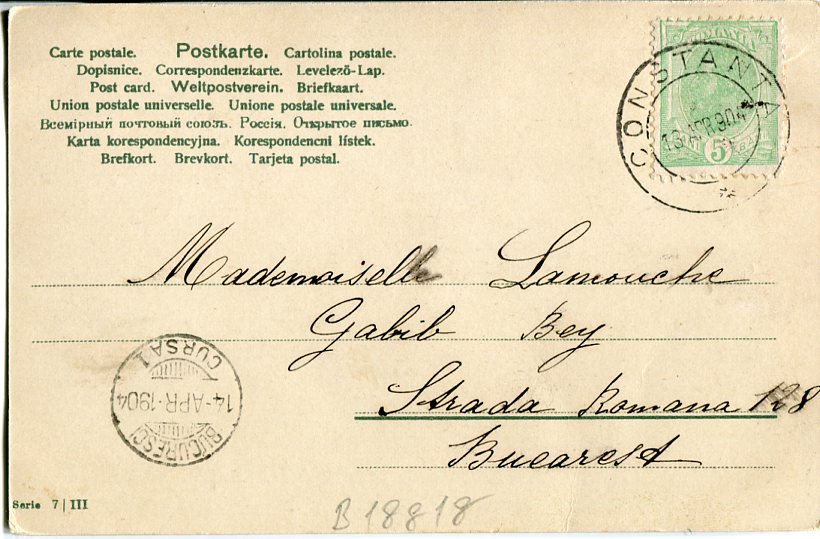 Carte postale. Postkarte. Cartolina postale.
Dopisnice. Correspondenzkarte. Levelező-Lap.
Post card. Weltpostverein. Briefkaart.
Union postale universelle. Unione postale universale.
Всемірный почтовый союзъ. Россія. Открытое письмо.
Karta korespondencyjna. Korespondencni lístek.
Brefkort. Brevkort. Tarjeta postal.
CONSTANTA
13 APR 904
5
Mademoiselle Lamouche
Gabib Bey
Strada Romana 128
Bucarest
CURSA 1
14-APR-1904
BUCURESCI
Serie 7 | III
B 18818